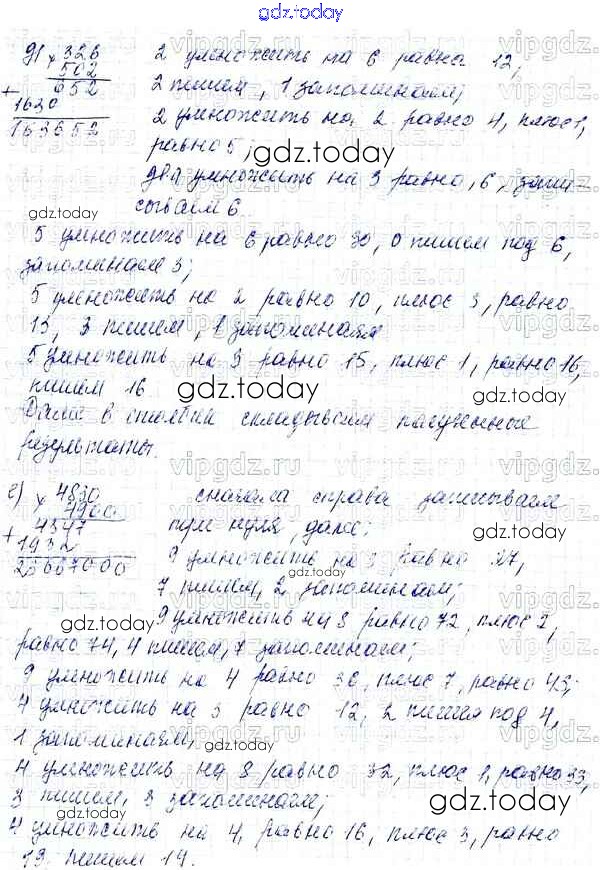 gdz.today
д) × 326 2 умножить на 6 равно 12,
502
652 2 пишем, 1 запоминаем;
+ 1630 2 умножить на 2 равно 4, плюс 1,
163652 равно 5;
gdz.today
два умножить на 3 равно, 6, запи-
gdz.today
сываем 6.
5 умножить на 6 равно 30, 0 пишем под 6,
запоминаем 3;
5 умножить на 2 равно 10, плюс 3, равно
13, 3 пишем, 1 запоминаем
5 умножить на 3 равно 15, плюс 1, равно 16,
пишем 16
gdz.today
Далее в столбик складываем
результаты.
е) × 4830 сначала справа записываем
4900
+ 4347 три нуля, далее;
1932 9 умножить на 3 равно 27,
23667000
gdz.today
7 пишем, 2 запоминаем;
gdz.today
9 умножить на 8 равно 72, плюс 2,
равно 74, 4 пишем, 7 запоминаем;
9 умножить на 4 равно 36, плюс 7, равно 43;
4 умножить на 3 равно 12, 2 пишем под 4,
1 запоминаем,
gdz.today
4 умножить на 8 равно 32, плюс 1, равно 33,
3 пишем, 3 запоминаем;
gdz.today
4 умножить на 4, равно 16, плюс 3, равно
19, пишем 19.